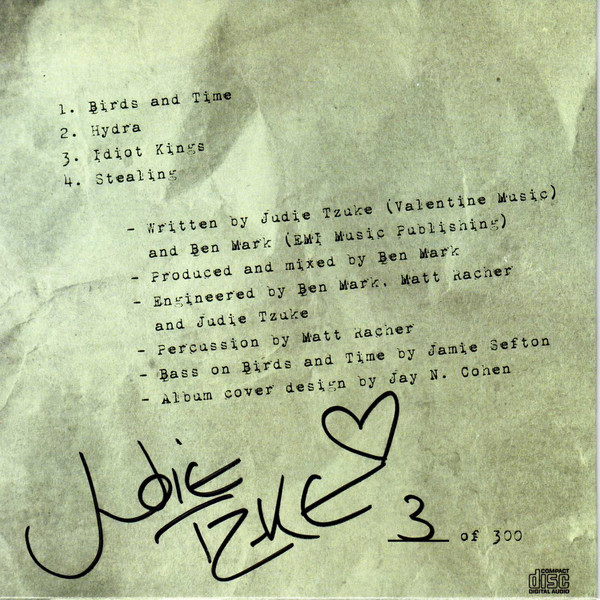 1. Birds and Time
2. Hydra
3. Idiot Kings
4. Stealing
- Written by Judie Tzuke (Valentine Music)
and Ben Mark (EMI Music Publishing)
- Produced and mixed by Ben Mark
- Engineered by Ben Mark, Matt Racher
and Judie Tzuke
- Percussion by Matt Racher
- Bass on Birds and Time by Jamie Sefton
- Album cover design by Jay N. Cohen
Judie
TZUKE
3 of 300
COMPACT
disc
DIGITAL AUDIO